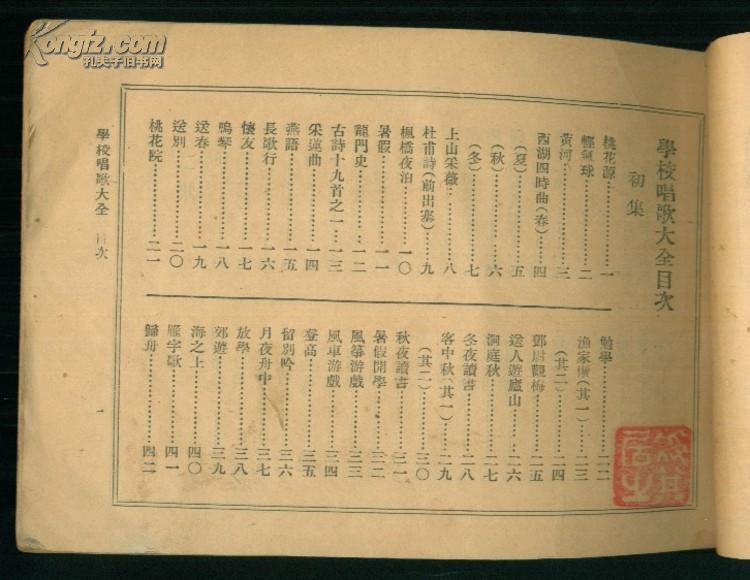 Kongfz.com
孔夫子旧书网
學校唱歌大全目次
初集
桃花源……一
輕氣球……二
黃河……三
西湖四時曲(春)…四
(夏)……五
(秋)……六
(冬)……七
上山采薇……八
杜甫詩(前出塞)…九
楓橋夜泊……一〇
暑假……一一
龍門史……一二
古詩十九首之一…一三
采蓮曲……一四
燕語……一五
長歌行……一六
懷友……一七
鳴琴……一八
送春……一九
送別……二〇
桃花院……二一
勉學……二二
漁家樂(其一)……二三
(其二)……二四
鄧尉觀梅……二五
送人遊廬山……二六
洞庭秋……二七
冬夜讀書……二八
客中秋(其一)……二九
(其二)……三〇
秋夜讀書……三一
暑假開學……三二
風箏游戲……三三
風車游戲……三四
登高……三五
留別吟……三六
月夜舟中……三七
放學……三八
郊遊……三九
海之上……四〇
雁字歌……四一
歸舟……四二
學校唱歌大全 目次
一